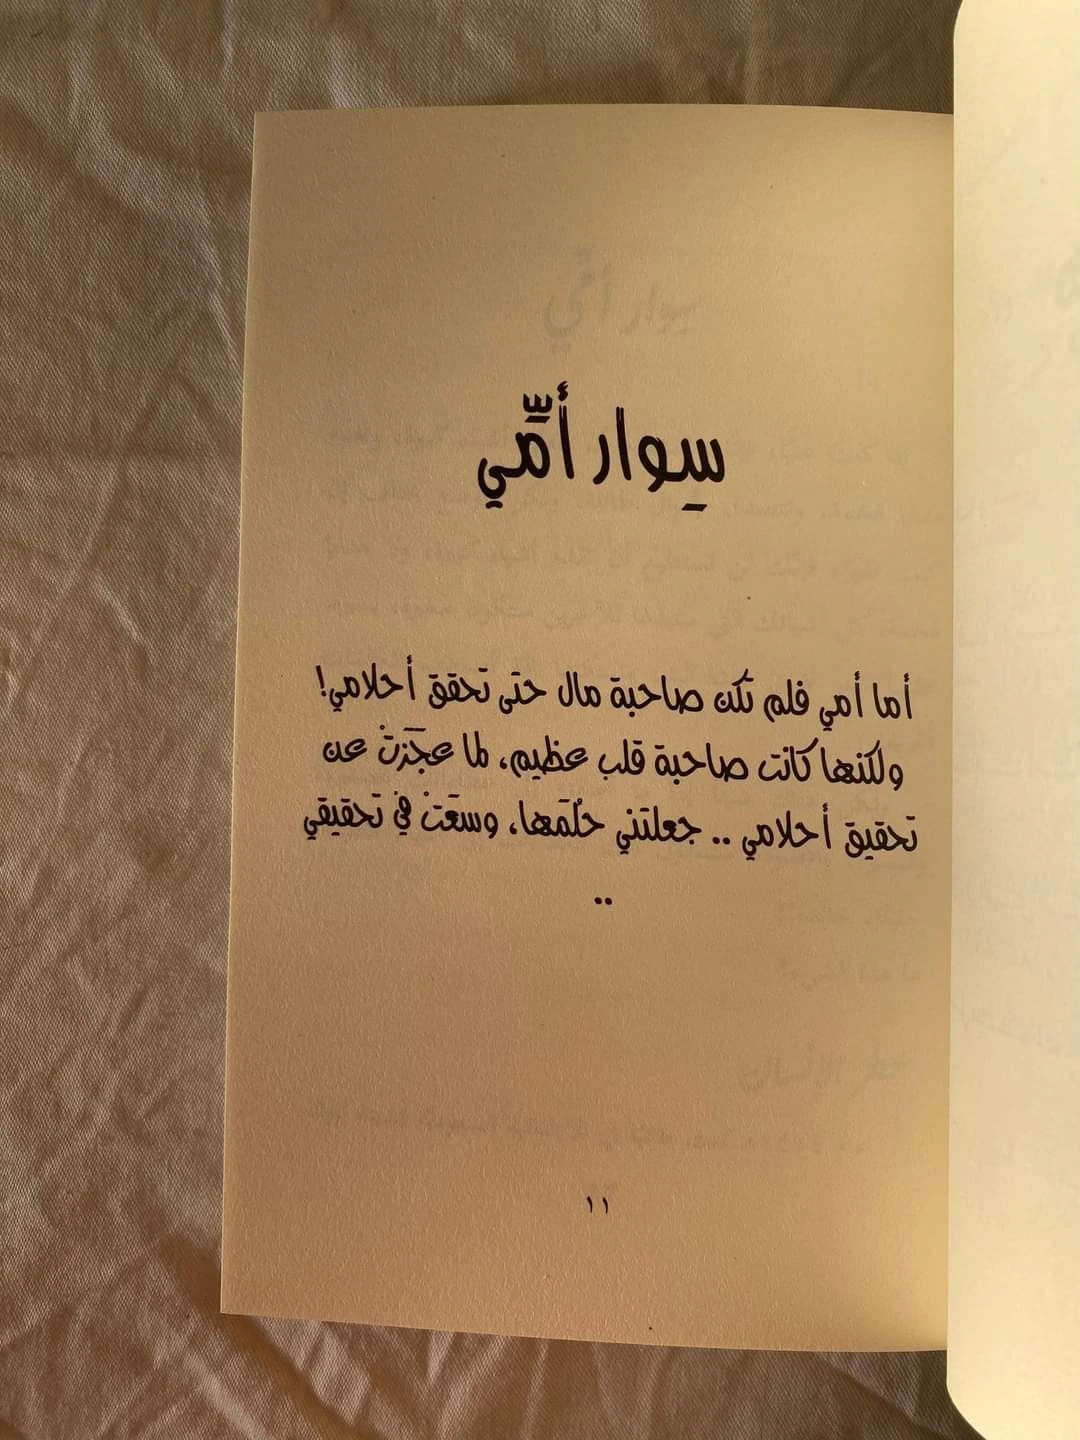 سِوار أمِّي
أما أمي فلم تكن صاحبة مال حتى تحقق أحلامي!
ولكنها كانت صاحبة قلب عظيم، لما عجَزتْ عن
تحقيق أحلامي .. جعلتني حُلمَها، وسعَتْ في تحقيقي
..
١١